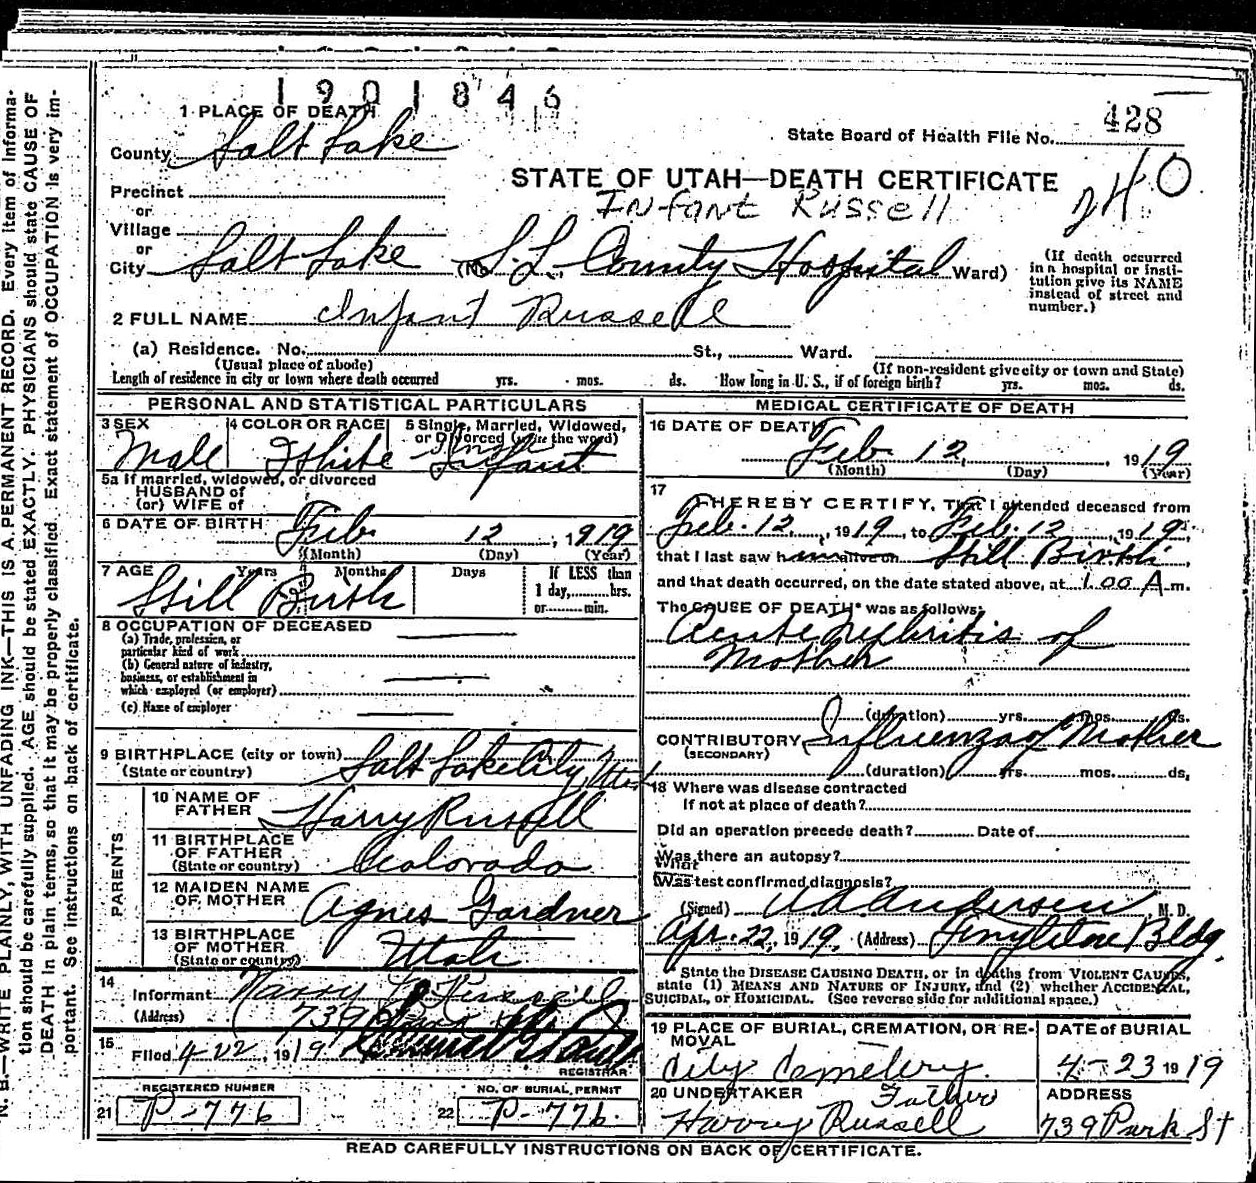 N. B.—WRITE PLAINLY, WITH UNFADING INK—THIS IS A PERMANENT RECORD. Every item of informa-
tion should be carefully supplied. AGE should be stated EXACTLY. PHYSICIANS should state CAUSE OF
DEATH in plain terms, so that it may be properly classified. Exact statement of OCCUPATION is very im-
portant. See instructions on back of certificate.
1901846
1 PLACE OF DEATH
State Board of Health File No. 428
County Salt Lake
STATE OF UTAH—DEATH CERTIFICATE
240
Precinct
Infant Russell
or
Village
or
City Salt Lake (No. S. L. County Hospital Ward)
(If death occurred
in a hospital or insti-
tution give its NAME
instead of street and
number.)
2 FULL NAME Infant Russell
(a) Residence. No. St., Ward.
(Usual place of abode) (If non-resident give city or town and State)
Length of residence in city or town where death occurred yrs. mos. ds. How long in U. S., if of foreign birth? yrs. mos. ds.
PERSONAL AND STATISTICAL PARTICULARS
3 SEX 4 COLOR OR RACE 5 Single, Married, Widowed,
or Divorced (write the word)
Male White Infant
5a If married, widowed, or divorced
HUSBAND of
(or) WIFE of
6 DATE OF BIRTH Feb. 12, 1919
(Month) (Day) (Year)
7 AGE Years Months Days If LESS than
1 day, hrs.
or min.
Still Birth
8 OCCUPATION OF DECEASED
(a) Trade, profession, or
particular kind of work
(b) General nature of industry,
business, or establishment in
which employed (or employer)
(c) Name of employer
9 BIRTHPLACE (city or town) Salt Lake City, Utah
(State or country)
PARENTS
10 NAME OF
FATHER Harry Russell
11 BIRTHPLACE
OF FATHER Colorado
(State or country)
12 MAIDEN NAME
OF MOTHER Agnes Gardner
13 BIRTHPLACE
OF MOTHER Utah
(State or country)
14
Informant Harry Russell
(Address) 739
15
Filed 4-22, 1919
REGISTRAR
REGISTERED NUMBER NO. OF BURIAL PERMIT
21 P-776 22 P-776.
MEDICAL CERTIFICATE OF DEATH
16 DATE OF DEATH
Feb 12, 1919
(Month) (Day) (Year)
17
I HEREBY CERTIFY, That I attended deceased from
Feb. 12, 1919, to Feb. 12, 1919.
that I last saw h alive on Still Birth,
and that death occurred, on the date stated above, at 1.00 A m.
The CAUSE OF DEATH* was as follows:
Acute Nephritis of
Mother
(duration) yrs. mos. ds.
CONTRIBUTORY Influenza of Mother
(SECONDARY)
(duration) yrs. mos. ds.
18 Where was disease contracted
If not at place of death?
Did an operation precede death? Date of
Was there an autopsy?
What
Was test confirmed diagnosis?
(Signed) Andersen M. D.
Apr. 22, 1919. (Address) Bldg.
State the DISEASE CAUSING DEATH, or in deaths from VIOLENT CAUSES,
state (1) MEANS AND NATURE OF INJURY, and (2) whether ACCIDENTAL,
SUICIDAL, or HOMICIDAL. (See reverse side for additional space.)
19 PLACE OF BURIAL, CREMATION, OR RE-
MOVAL
DATE of BURIAL
City Cemetery. 4-23 1919
20 UNDERTAKER Father ADDRESS
Harry Russell 739 Park St
READ CAREFULLY INSTRUCTIONS ON BACK OF CERTIFICATE.